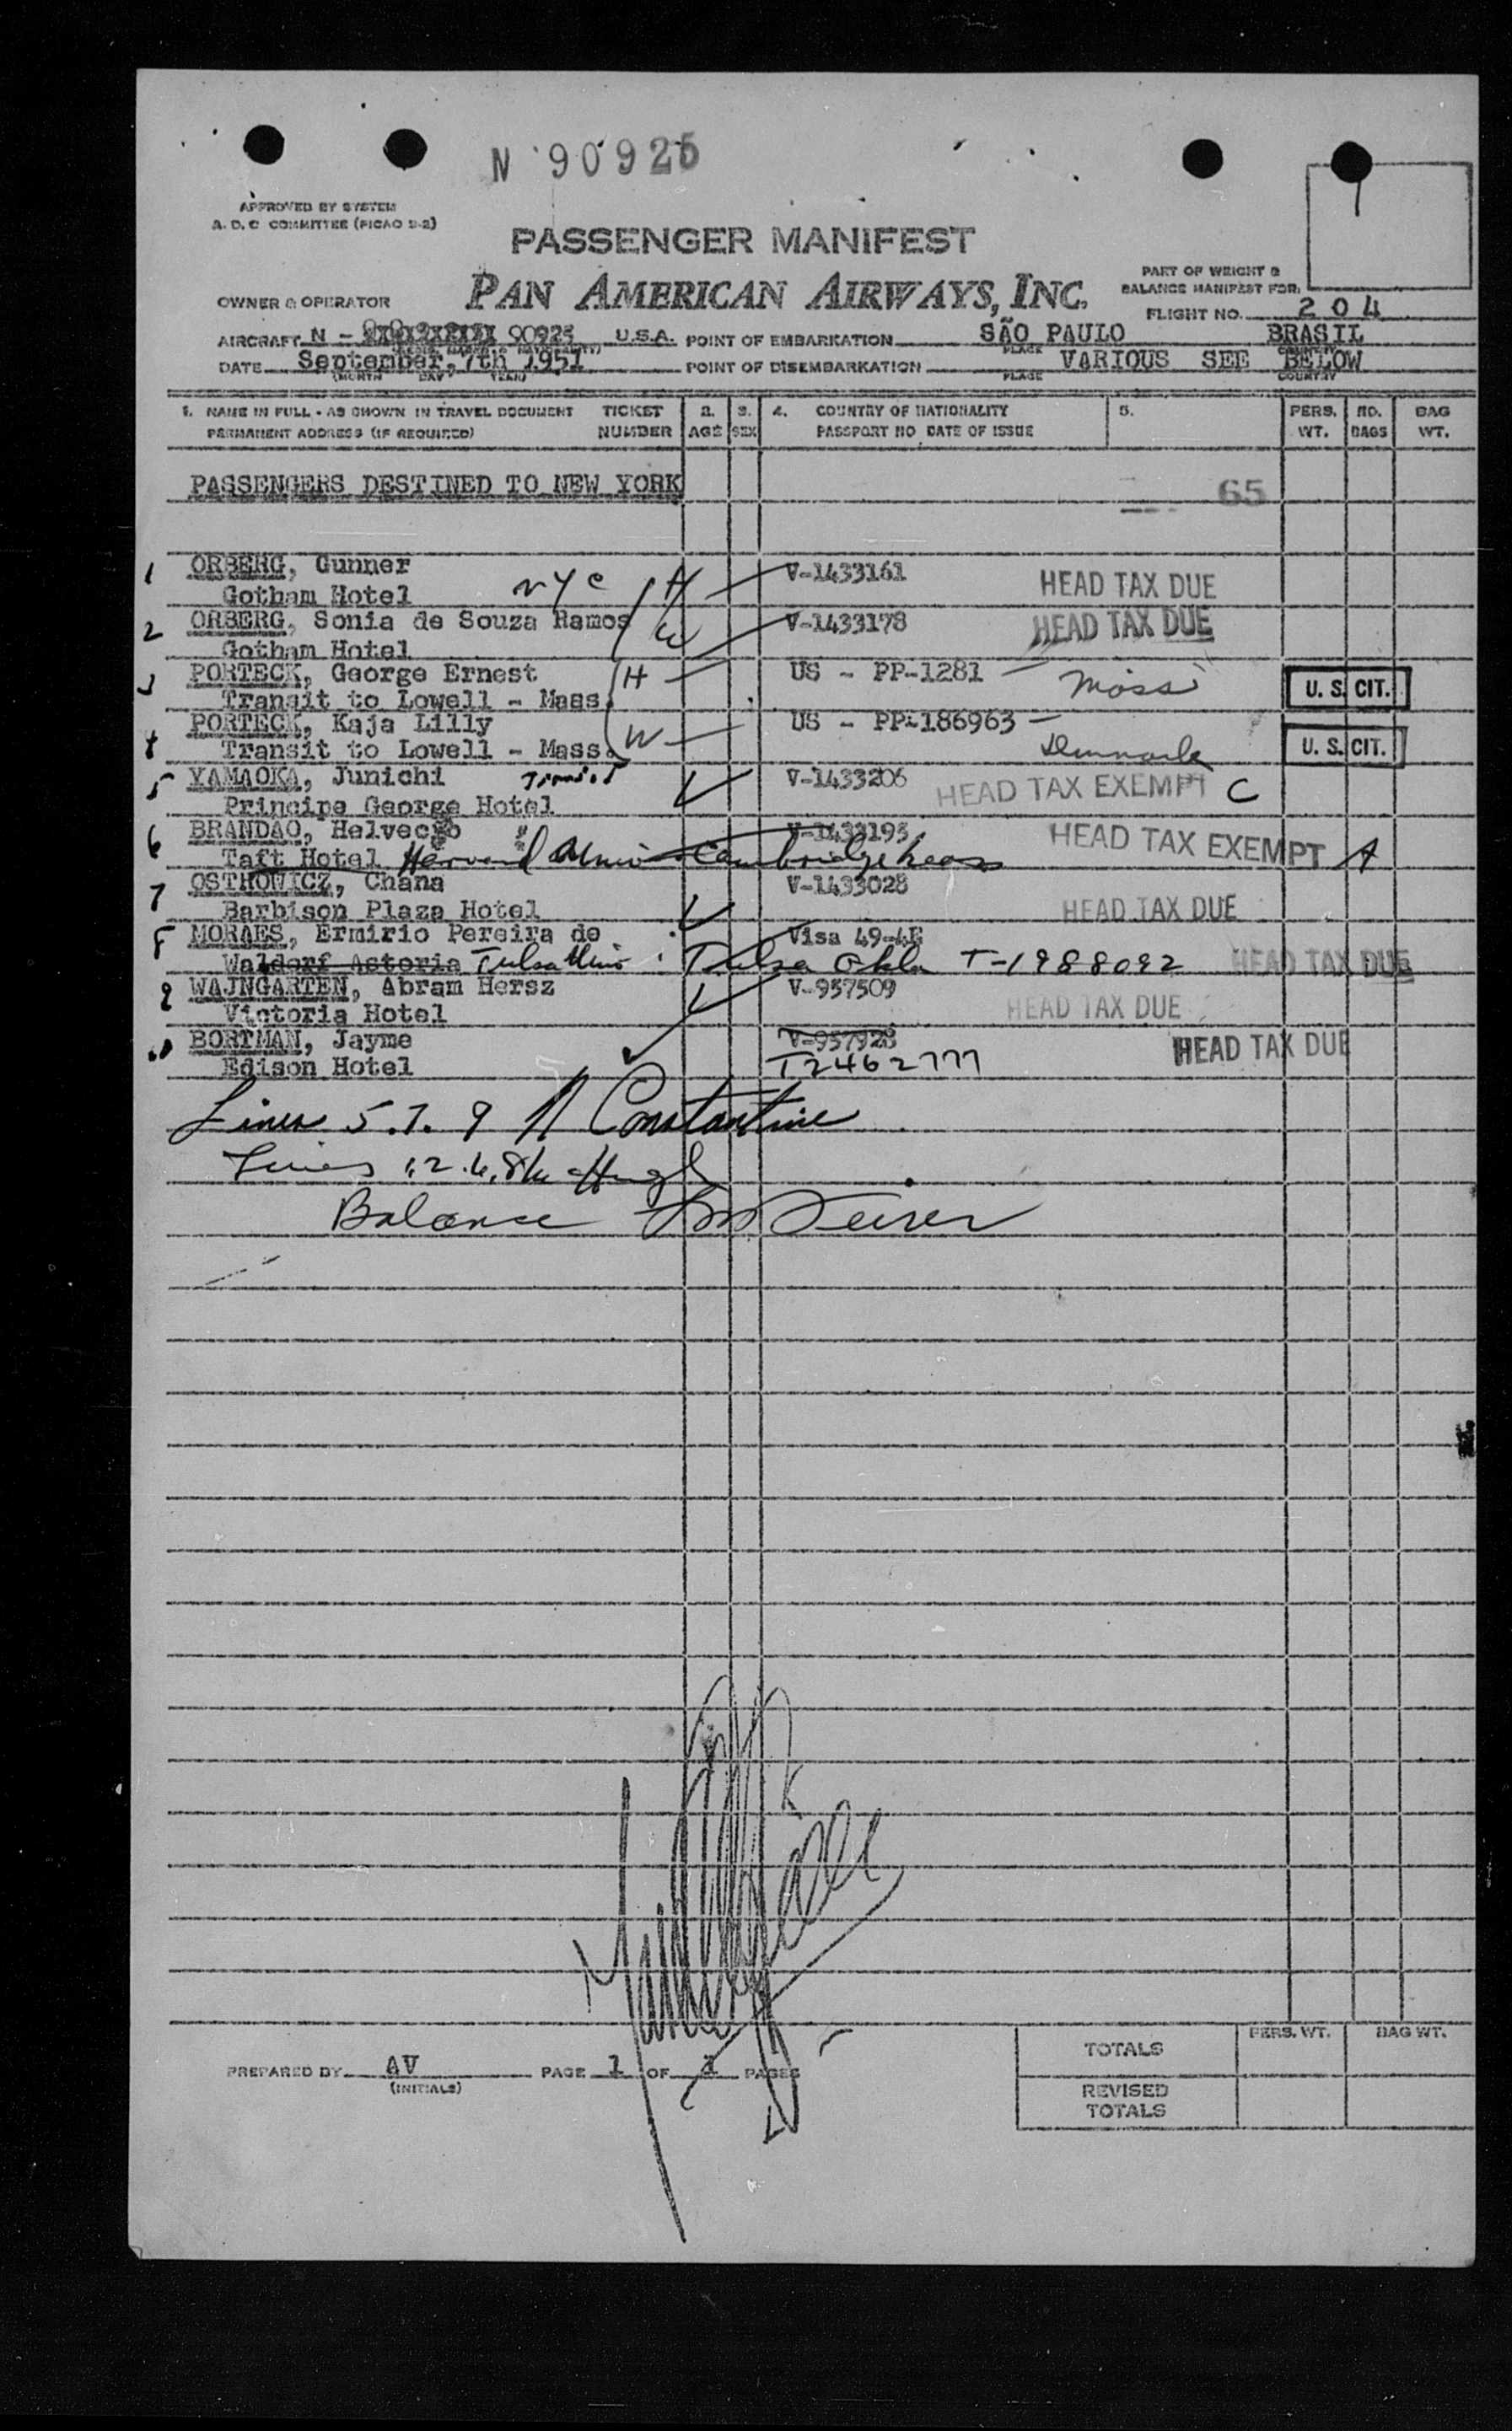 N 90925
APPROVED BY SYSTEM
A. D. C COMMITTEE (PICAO S-2)
PASSENGER MANIFEST
PAN AMERICAN AIRWAYS, INC.
PART OF WEIGHT &
BALANCE MANIFEST FOR:
OWNER & OPERATOR
FLIGHT NO. 204
AIRCRAFT N - 90925 U.S.A. POINT OF EMBARKATION SÃO PAULO BRASIL
PLACE COUNTRY
DATE September, 7th 1951 POINT OF DISEMBARKATION VARIOUS SEE BELOW
(MONTH DAY YEAR) PLACE COUNTRY
1. NAME IN FULL - AS SHOWN IN TRAVEL DOCUMENT TICKET 2. 3. 4. COUNTRY OF NATIONALITY 5. PERS. NO. BAG
PERMANENT ADDRESS (IF REQUIRED) NUMBER AGE SEX PASSPORT NO DATE OF ISSUE WT. BAGS WT.
PASSENGERS DESTINED TO NEW YORK
65
1 ORBERG, Gunner H V-1433161 HEAD TAX DUE
Gotham Hotel NYC
2 ORBERG, Sonia de Souza Ramos W V-1433178 HEAD TAX DUE
Gotham Hotel
3 PORTECK, George Ernest H US - PP-1281 Mass U. S. CIT.
Transit to Lowell - Mass.
4 PORTECK, Kaja Lilly W US - PP-186963 Denmark U. S. CIT.
Transit to Lowell - Mass.
5 YAMAOKA, Junichi Transit V-1433206 HEAD TAX EXEMPT C
Principe George Hotel
6 BRANDAO, Helvecio " V-1433195 HEAD TAX EXEMPT A
Taft Hotel Harvard Cambridge
7 OSTROWICZ, Chana V-1433028 HEAD TAX DUE
Barbison Plaza Hotel
8 MORAES, Ermirio Pereira de Visa 49-4E
Waldorf Astoria Tulsa Tulsa Okla T-1988092 HEAD TAX DUE
9 WAJNGARTEN, Abram Hersz V-957509 HEAD TAX DUE
Victoria Hotel
10 BORTMAN, Jayme V-957928 HEAD TAX DUE
Edison Hotel T2462777
Lines 5.7.9 N Constantine
Lines 1.2.6.8
Balance
PREPARED BY AV PAGE 1 OF 1 PAGES
(INITIALS)
PERS. WT. BAG WT.
TOTALS
REVISED
TOTALS